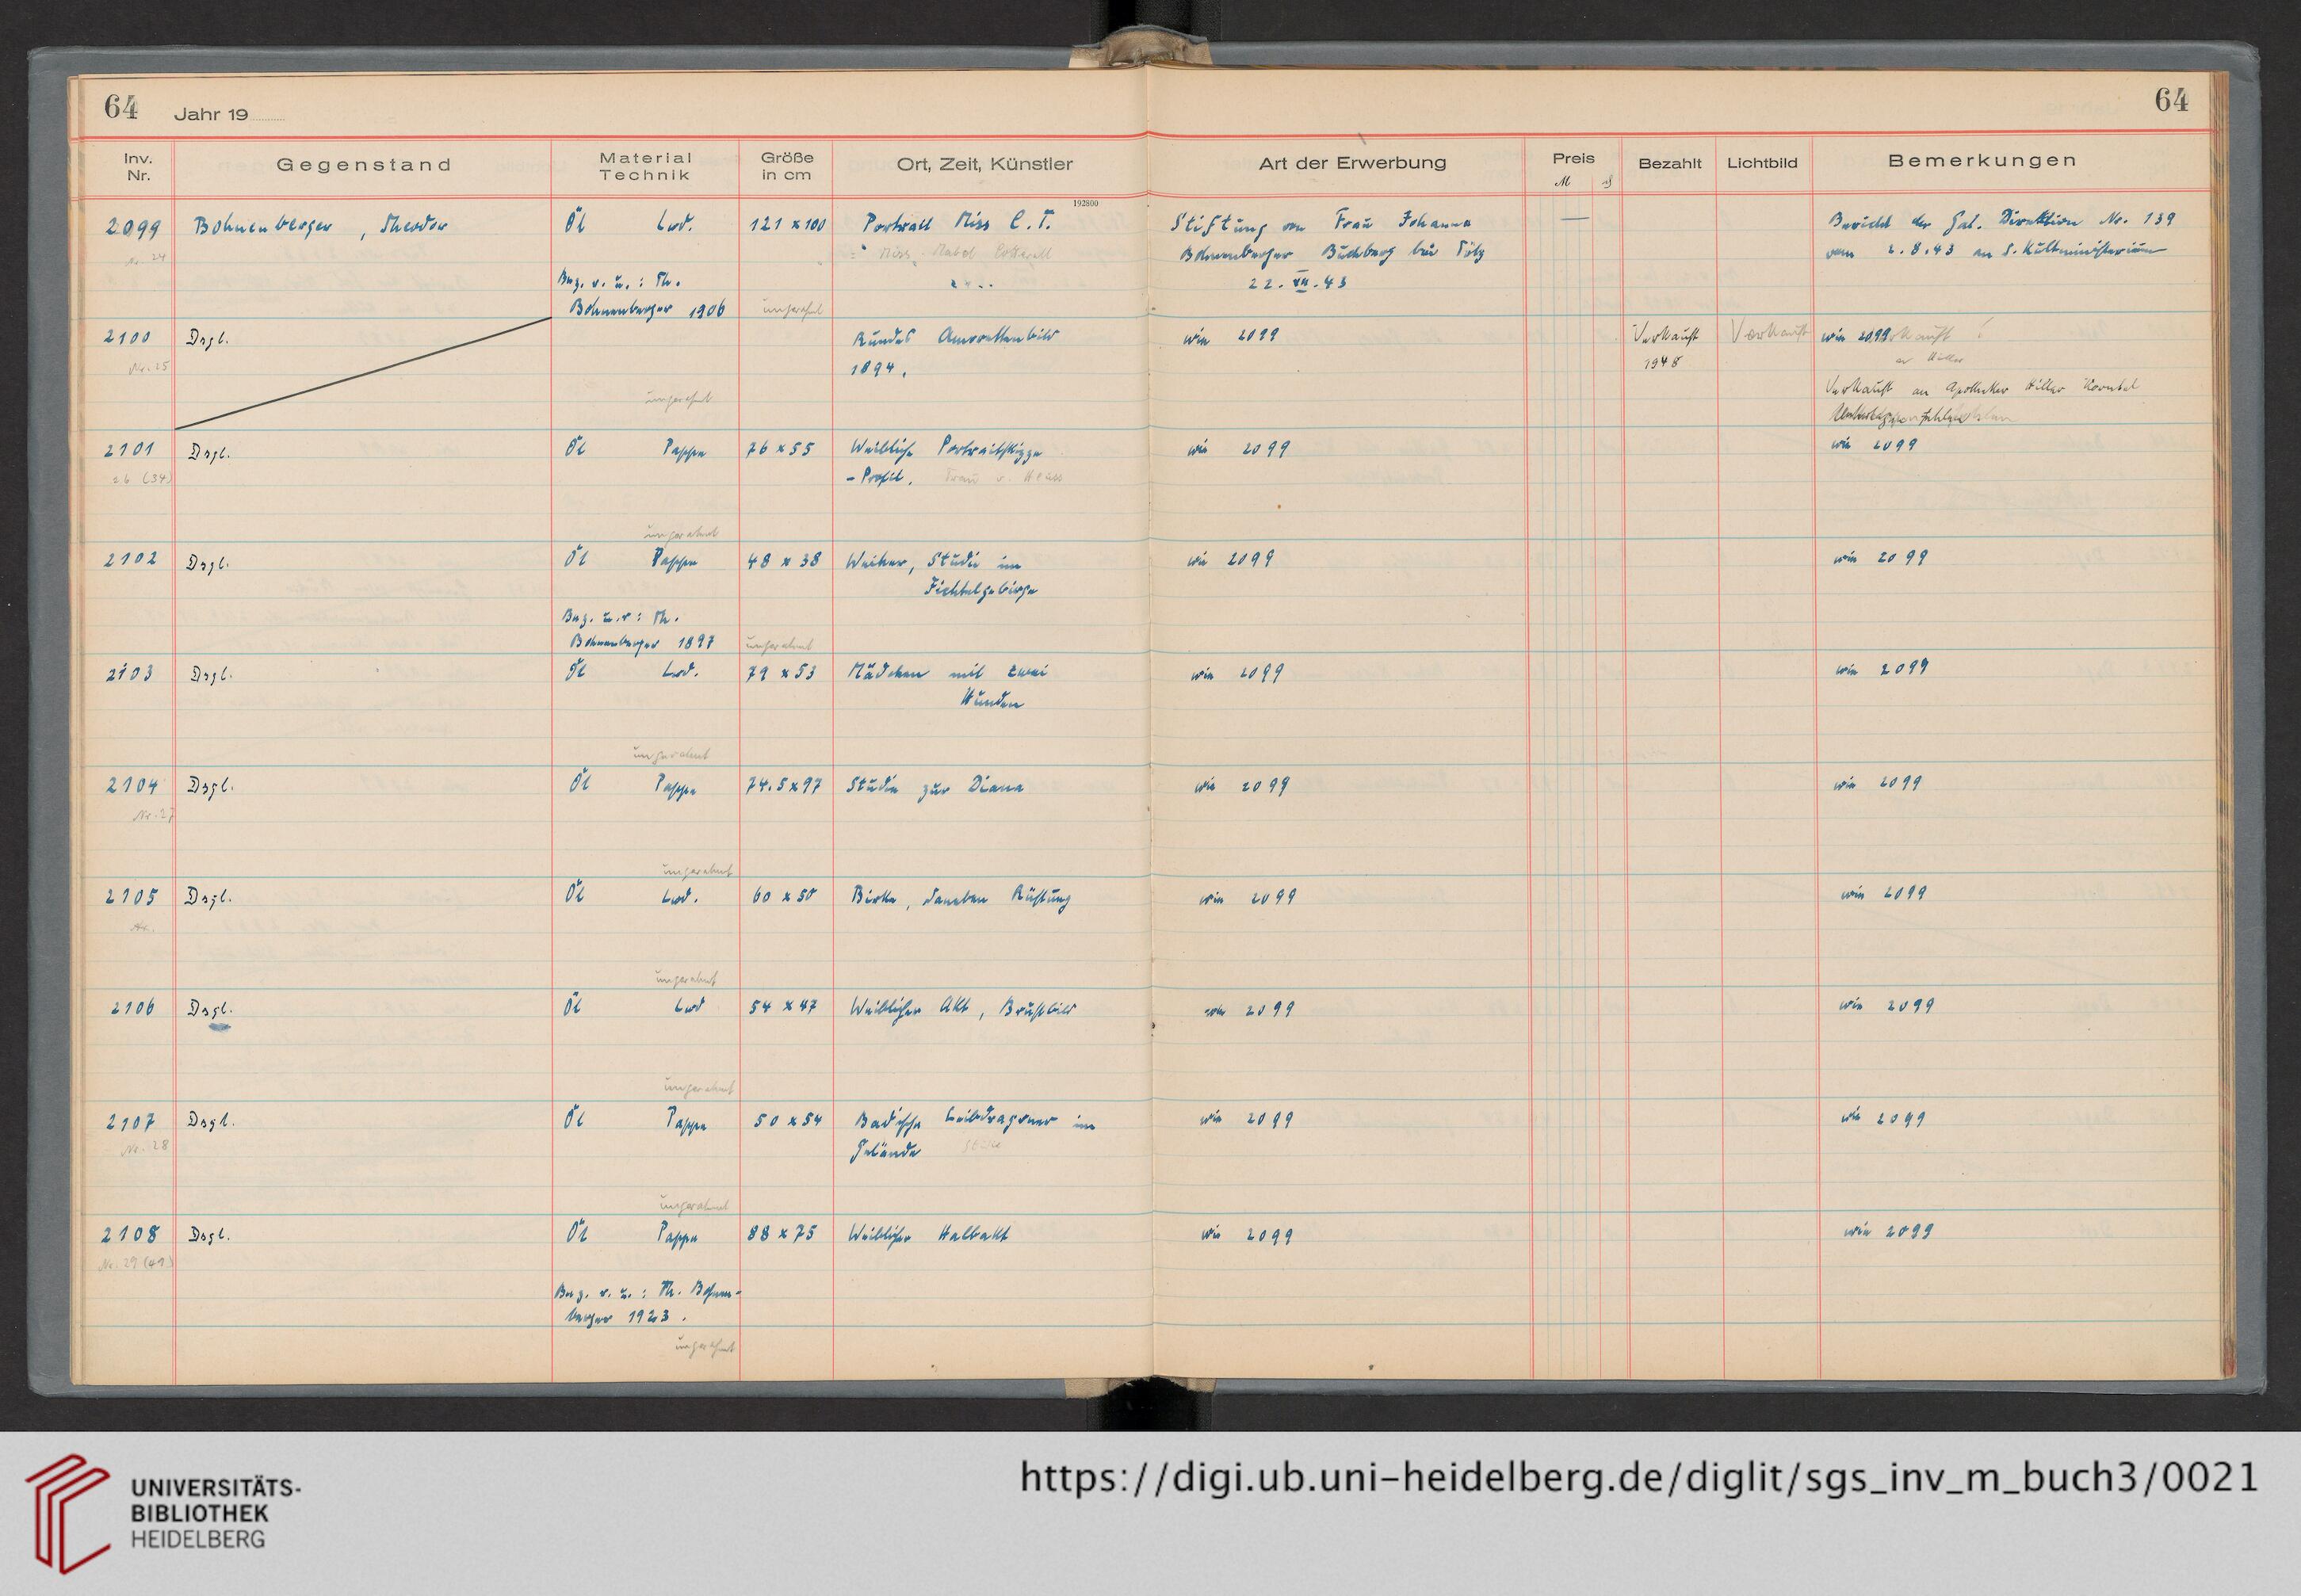 64 Jahr 19 64
Inv. Nr. Gegenstand Material Technik Größe in cm Ort, Zeit, Künstler Art der Erwerbung Preis M Bezahlt Lichtbild Bemerkungen
192800
2099 Bohnenberger, Theodor Öl Lwd. 121 x 100 Portrait Miss C. T. Stiftung von Frau Johanna — Bericht der Gal. Direktion Nr. 139
Nr. 24 = Miss Mabel Bohnenberger Buchberg bei Tölz vom 2.8.43 an d. Kultministerium
Bez. r. u. : Th. 22. VII. 43
Bohnenberger 1906 ungerahmt
2100 Dsgl. Rundes Amorettenbild wie 2099 Verkauft Verkauft wie 2099
Nr. 25 1894. 1948
ungerahmt Verkauft an Apotheker Hiller Korntal
2101 Dsgl. Öl Pappe 76 x 55 Weibliche Portraitskizze wie 2099 wie 2099
26 (34) - Profil. Frau v.
ungerahmt
2102 Dsgl. Öl Pappe 48 x 38 Weiher, Studie im wie 2099 wie 2099
Fichtelgebirge
Bez. u. r : Th.
Bohnenberger 1897 ungerahmt
2103 Dsgl. Öl Lwd. 79 x 53 Mädchen mit zwei wie 2099 wie 2099
Hunden
ungerahmt
2104 Dsgl. Öl Pappe 74.5 x 97 Studie zur Diana wie 2099 wie 2099
Nr. 27
ungerahmt
2105 Dsgl. Öl Lwd. 60 x 50 Birke, daneben Rüstung wie 2099 wie 2099
Nr.
ungerahmt
2106 Dsgl. Öl Lwd 54 x 47 Weiblicher Akt, Brustbild wie 2099 wie 2099
ungerahmt
2107 Dsgl. Öl Pappe 50 x 54 Badische Leibdragoner im wie 2099 wie 2099
Nr. 28 Gelände
ungerahmt
2108 Dsgl. Öl Pappe 88 x 75 Weiblicher Halbakt wie 2099 wie 2099
Nr. 29 (41)
Bez. r. u. : Th. Bohnen-
berger 1923.
ungerahmt
UNIVERSITÄTS-
BIBLIOTHEK
HEIDELBERG
https://digi.ub.uni-heidelberg.de/diglit/sgs_inv_m_buch3/0021